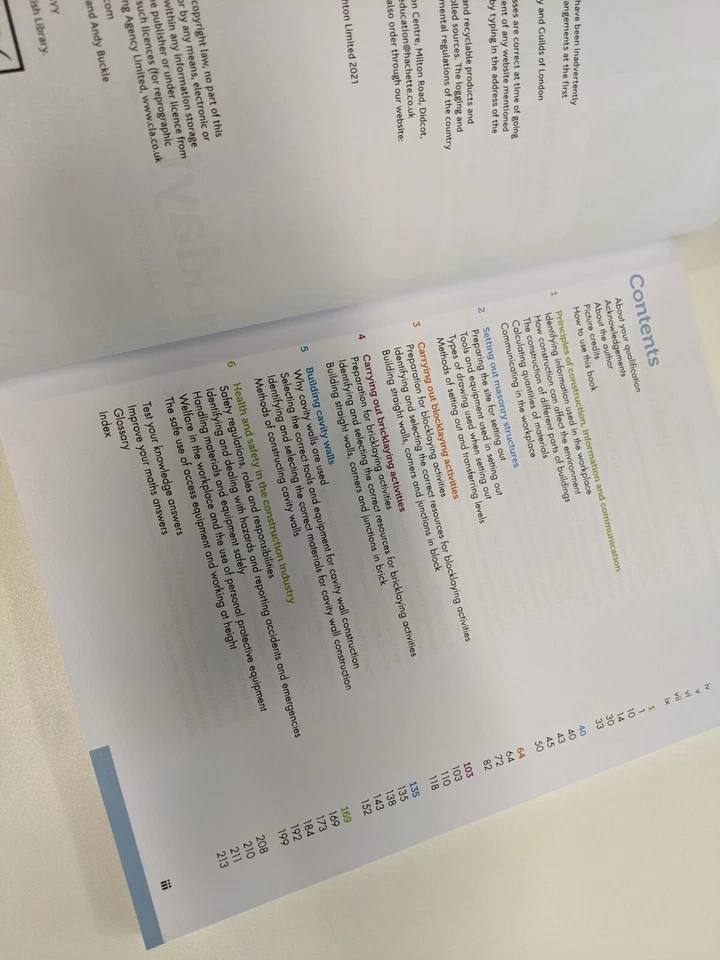 have been inadvertently
angements at the first
y and Guilds of London
sses are correct at time of going
ent of any website mentioned
by typing in the address of the
and recyclable products and
olled sources. The logging and
mental regulations of the country
on Centre, Milton Road, Didcot,
education@hachette.co.uk
also order through our website:
nton Limited 2021
copyright law, no part of this
or by any means, electronic or
within any information storage
e publisher or under licence from
such licences (for reprographic
ng Agency Limited, www.cla.co.uk
.com
and Andy Buckle
YY
ish Library.
Contents
About your qualification iv
Acknowledgements v
About the author vi
Picture credits vii
How to use this book ix
1 Principles of construction, information and communication 1
Identifying information used in the workplace 1
How construction can affect the environment 10
The construction of different parts of buildings 14
Calculating quantities of materials 30
Communicating in the workplace 33
2 Setting out masonry structures 40
Preparing the site for setting out 40
Tools and equipment used in setting out 43
Types of drawing used when setting out 45
Methods of setting out and transferring levels 50
3 Carrying out blocklaying activities 64
Preparation for blocklaying activities 64
Identifying and selecting the correct resources for blocklaying activities 72
Building straight walls, corners and junctions in block 82
4 Carrying out bricklaying activities 103
Preparation for bricklaying activities 103
Identifying and selecting the correct resources for bricklaying activities 110
Building straight walls, corners and junctions in brick 118
5 Building cavity walls 135
Why cavity walls are used 135
Selecting the correct tools and equipment for cavity wall construction 138
Identifying and selecting the correct materials for cavity wall construction 143
Methods of constructing cavity walls 152
6 Health and safety in the construction industry 169
Safety regulations, roles and responsibilities 169
Identifying and dealing with hazards and reporting accidents and emergencies 173
Handling materials and equipment safely 184
Welfare in the workplace and the use of personal protective equipment 192
The safe use of access equipment and working at height 199
Test your knowledge answers 208
Improve your maths answers 210
Glossary 211
Index 213
iii